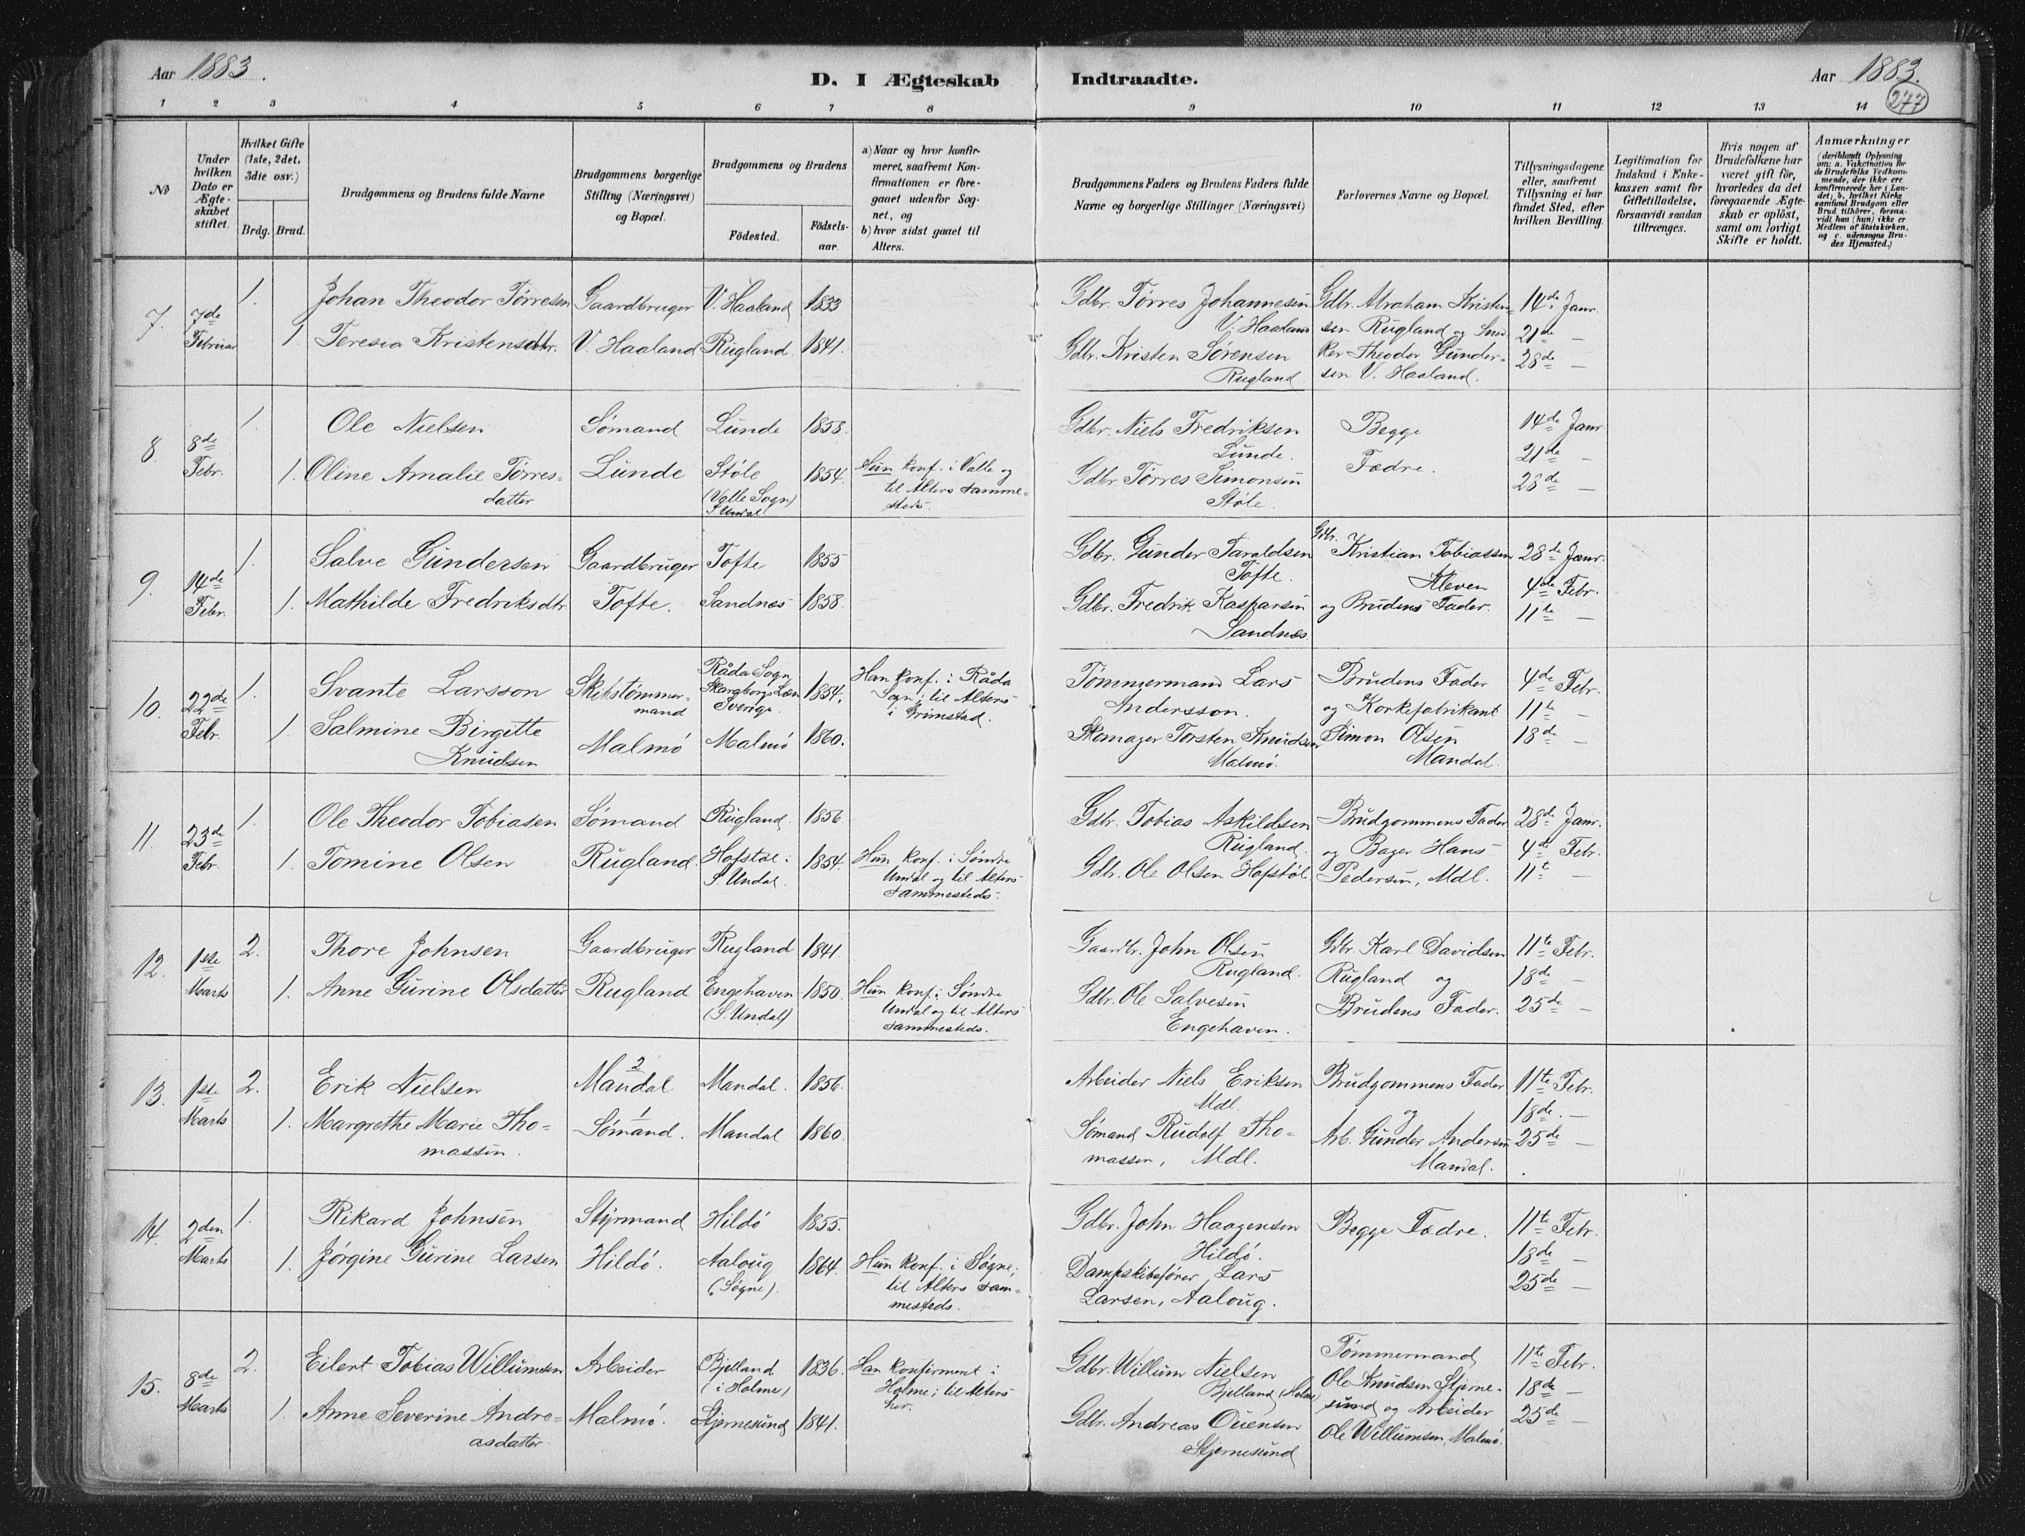 Aar 1883.
D. I Ægteskab Indtraadte.
Aar 1883.
277
1 2 3 4 5 6 7 8 9 10 11 12 13 14
No
Under hvilken Dato er Ægteskabet stiftet.
Hvilket Gifte (1ste, 2det, 3die osv.)
Brdg. Brud.
Brudgommens og Brudens fulde Navne
Brudgommens borgerlige Stilling (Næringsvei) og Bopæl.
Brudgommens og Brudens
Fødested. Fødselsaar.
a) Naar og hvor konfirmeret, saafremt Konfirmationen er foregaaet udenfor Sognet, og
b) hvor sidst gaaet til Alters.
Brudgommens Faders og Brudens Faders fulde Navne og borgerlige Stillinger (Næringsvei)
Forlovernes Navne og Bopæl.
Tillysningsdagene eller, saafremt Tillysning ei har fundet Sted, efter hvilken Bevilling.
Legitimation for Indskud i Enkekassen samt for Giftetilladelse, forsaavidt saadan tiltrænges.
Hvis nogen af Brudefolkene har været gift før, hvorledes da det foregaaende Ægteskab er opløst, samt om lovligt Skifte er holdt.
Anmærkninger
(deriblandt Oplysning om: a. Vakcination for de Brudefolks Vedkommende, der ikke ere konfirmerede her i Landet; b. hvilket Kirkesamfund Brudgom eller Brud tilhører, forsaavidt han (hun) ikke er Medlem af Statskirken, og c. udensogns Brudes Hjemsted.)
7. 7de Februar 1. Johan Theodor Tørresen Gaardbruger V. Haaland 1833 Gdbr. Tørres Johannesen V. Haaland Gdbr. Abraham Kristen- 14de Janr.
1. Teresia Kristensdtr. V. Haaland Rugland 1841. Gdbr. Kristen Sørensen Rugland. sen Rugland og Sned- 21de —
ker Theodor Gunder- 28de —
sen V. Haaland.
8. 8de Febr. 1. Ole Nielsen Sømand Lunde 1853. Gdbr. Niels Fredriksen Lunde. Begge 14de Janr
1. Oline Amalie Tørres-datter Lunde Støle (Valle Sogn) S. Undal 1854. Hun konf. i Valle og til Alters sammesteds. Gdbr. Tørres Simonsen Støle. Fædre. 21de —
28de —
9. 14de Febr. 1. Salve Gundersen Gaardbruger Tofte 1855 Gdbr. Gunder Taraldsen Tofte. Gdbr. Kristian Tobiassen Kleven 28de Janr.
1. Mathilde Fredriksdtr Tofte. Sandnæs 1858. Gdbr. Fredrik Kaspersen Sandnæs og Brudens Fader. 4de Febr.
11te —
10. 22de Febr. 1. Svante Larsson Skibstømmer-mand Råda Sogn Skaraborgs Læn Sverige. 1854. Han konf. i Råda Sogn; til Alters i Grimstad. Tømmermand Lars Andersson. Brudens Fader og Korkefabrikant 4de Febr.
1. Salmine Birgitte Knudsen Malmø Malmø 1860. Skomager Torsten Knudsen Malmø. Simon Olsen Mandal. 11te —
18de —
11. 23de Febr. 1. Ole Theodor Tobiasen Sømand Rugland. 1856 Gdbr. Tobias Askildsen Rugland. Brudgommens Fader 28de Janr.
1. Tomine Olsen Rugland. Hofstøl: S. Undal. 1854. Hun konf. i Søndre Undal og til Alters sammesteds. Gdbr. Ole Olsen Hofstøl og Bager Hans Pedersen, Mdl. 4de Febr.
11te —
12. 1ste Marts 2. Thore Johnsen Gaardbruger Rugland 1841. Gaardbr. John Olsen Rugland. Gdbr. Karl Davidsen 11te Febr.
1. Anne Gurine Olsdatter Rugland Engehaven (S. Undal) 1850. Hun konf. i Søndre Undal og til Alters sammesteds. Gdbr. Ole Salvesen Engehaven. Rugland og Brudens Fader. 18de —
25de —
13. 1ste Marts 2. Erik Nielsen 2 Mandal Mandal. 1856. Arbeider Niels Eriksen Mdl. Brudgommens Fader 11te Febr.
1. Margrethe Marie Tho-massen. 1 Sømand. Mandal 1860. Sømand Rudolf Tho-massen, Mdl. og Arb. Gunder Andersen Mandal. 18de. —
25de —
14. 2den Marts 1. Rikard Johnsen Styrmand Hildø 1855. Gdbr. John Haagensen Hildø. Begge Fædre. 11te Febr.
1. Jørgine Gurine Larsen Hildø. Aaloug (Søgne). 1864. Hun konf. i Søgne; til Alters sam-mesteds. Dampskibsfører Lars Larsen, Aaloug. 18de —
25de —
15. 8de Marts 2. Eilert Tobias Willumsen Arbeider Bjelland (i Holme) 1836. Han konfirmert i Holme; til Alters her. Gdbr. Willum Nielsen Bjelland (Holme) Tømmermand 11te Febr.
1. Anne Severine Andre-asdatter Malmø. Stjernesund 1841. Gdbr. Andreas Ouensen Stjernesund Ole Knudsen Stjerne-sund og Arbeider Ole Willumsen, Malmø. 18de —
25de —